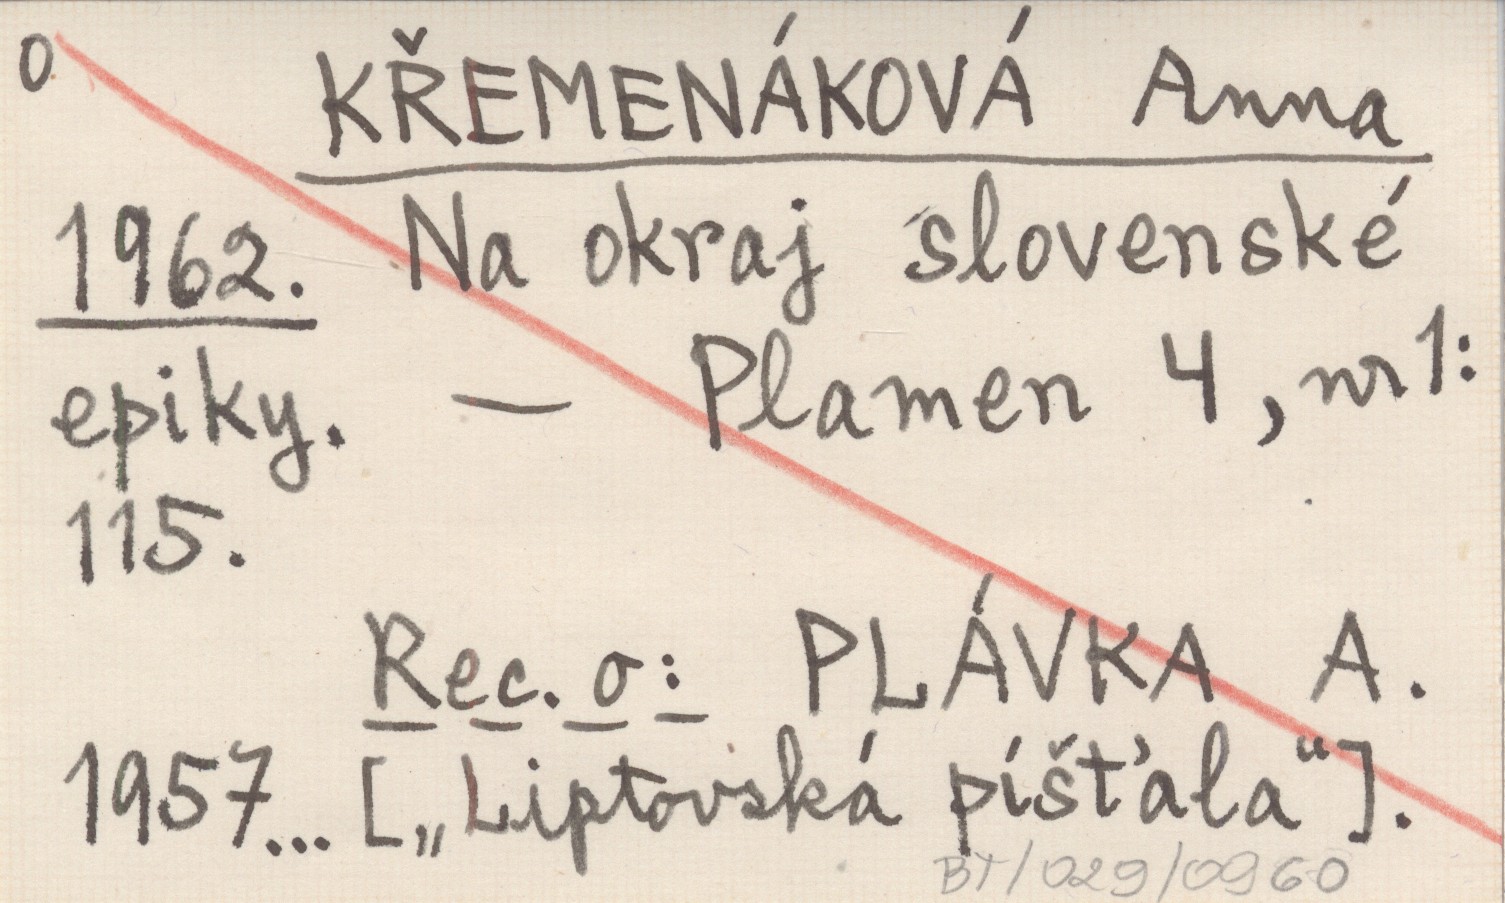 0 KŘEMENÁKOVÁ Anna
1962. Na okraj slovenské
epiky. — Plamen 4, nr 1:
115.
Rec. o: PLÁVKA A.
1957... [„Liptovská píšťala“].
BT/029/0960